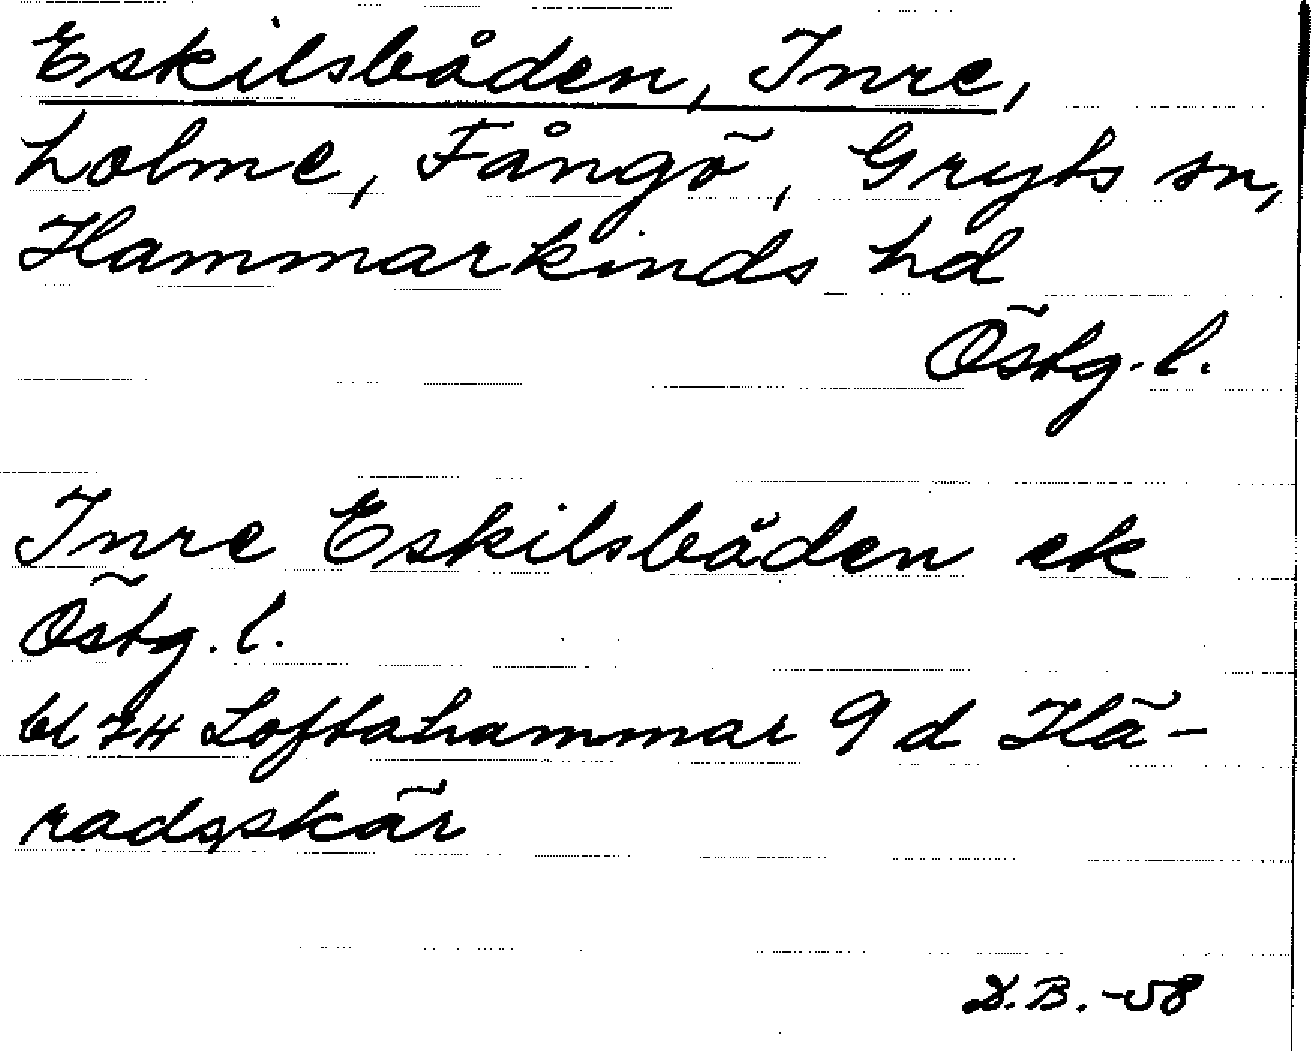 Eskilsbåden, Inre,
holme, Fångö, Gryts sn,
Hammarkinds hd
Östg. l.
Inre Eskilsbåden ek
Östg. l.
bl 7H Loftahammar 9 d Hä-
radsskär
D.B. -58